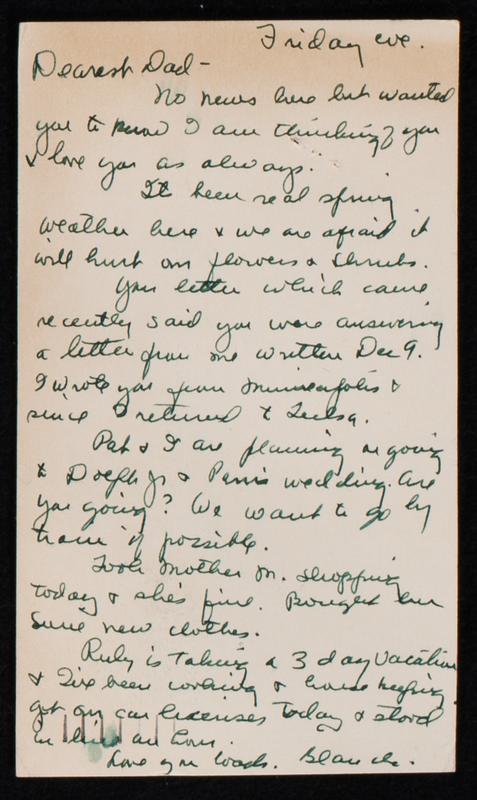 Friday eve.
Dearest Dad -
No news here but wanted
you to know I am thinking of you
& love you as always.
It been real spring
weather here & we are afraid it
will hurt our flowers & shrubs.
Your letter which came
recently said you were answering
a letter from me written Dec 9.
I wrote you from Minneapolis &
since I returned to Tulsa.
Pat & I are planning on going
to Dolph Jr & Pam's wedding. Are
you going? We want to go by
train if possible.
Took Mother M. shopping
today & she's fine. Bought her
some new clothes.
Ruby is taking a 3 day vacation
& I've been working & house keeping
got our car licenses today & stood
in line an hour.
Love you loads. Blanche.